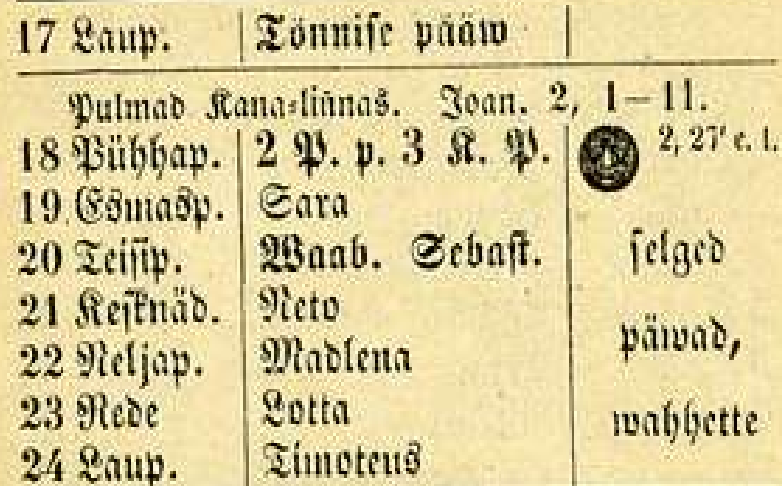 17 Laup. Tönnise pääw
Pulmad Kana-liñnas. Joan. 2, 1–11.
18 Pühhap. 2 P. p. 3 K. P. 2, 27' e. l.
19 Esmasp. Sara
20 Teisip. Waab. Sebast. selged
21 Kesknäd. Neto
22 Neljap. Madlena päiwad,
23 Rede Lotta wahhette
24 Laup. Timoteus